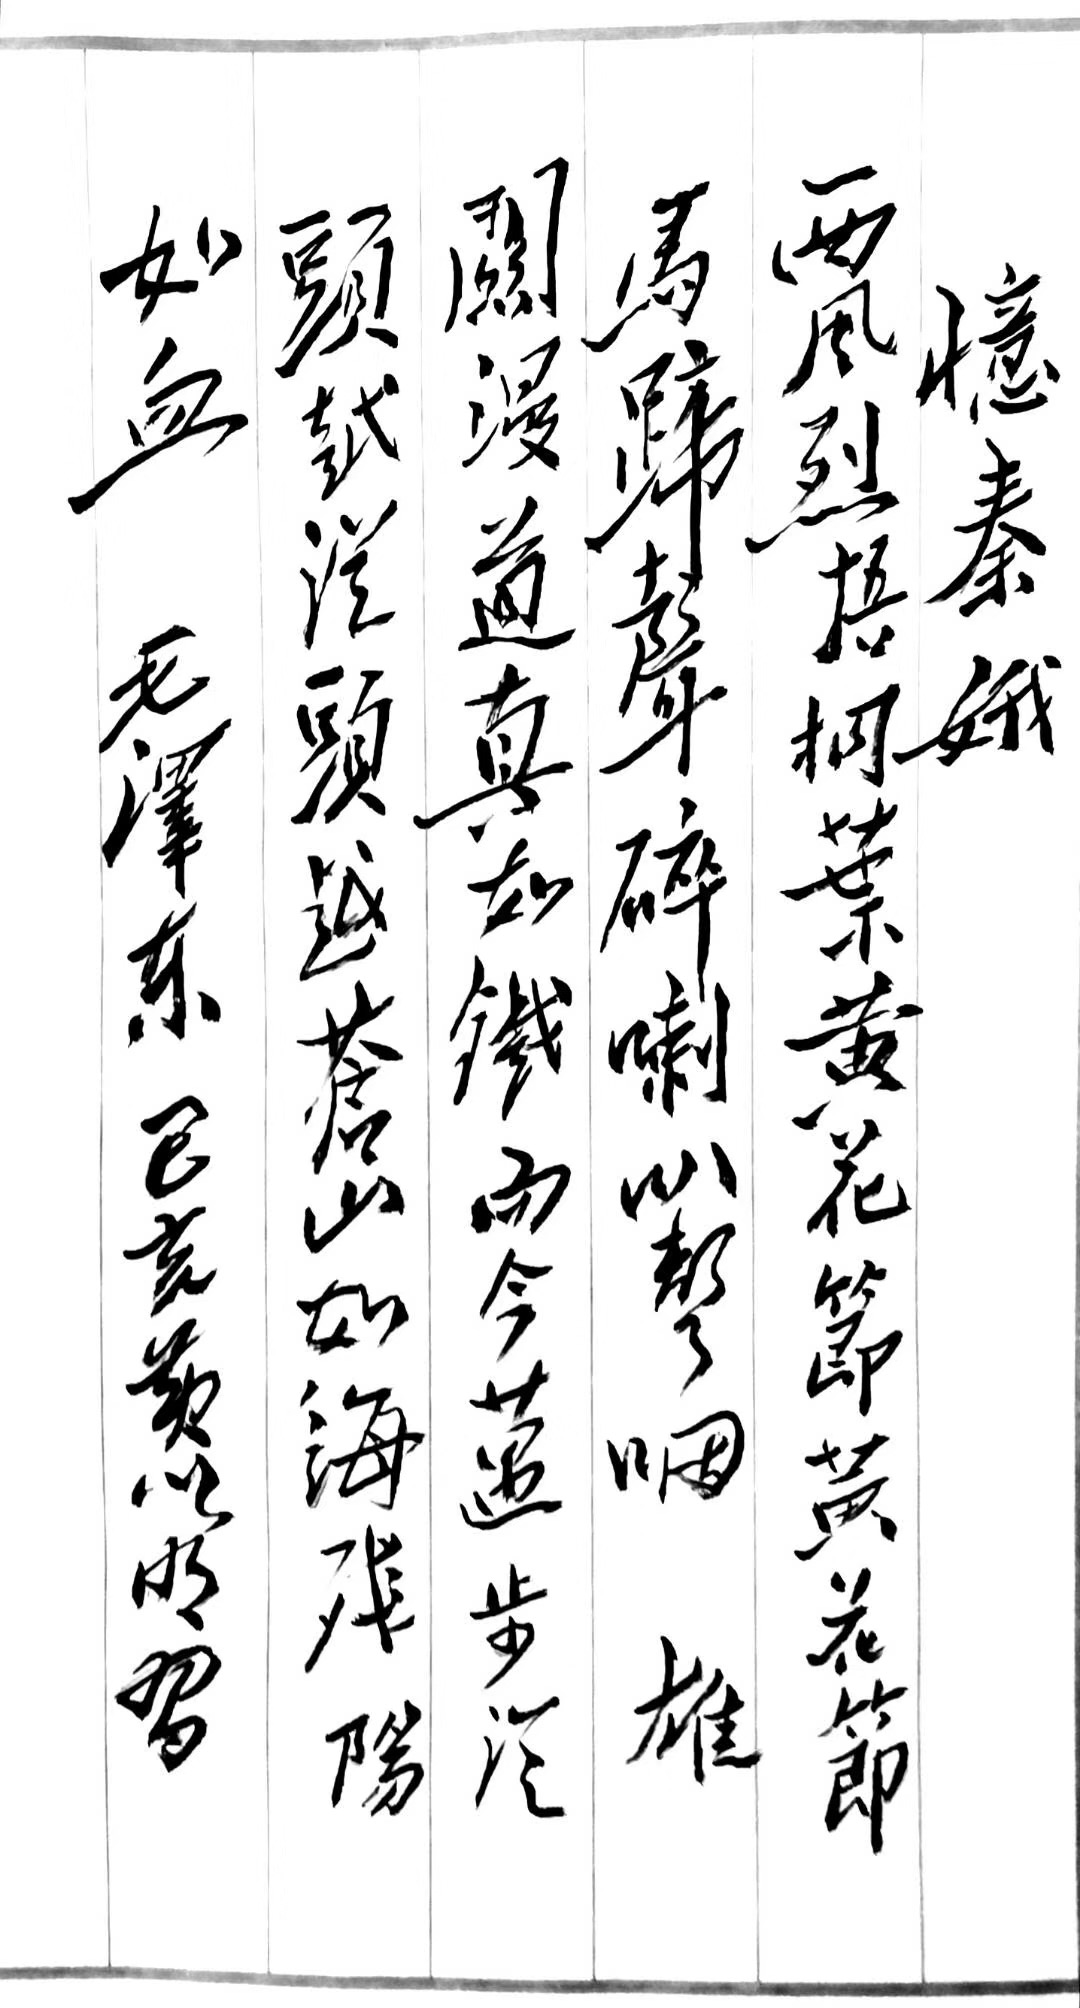 憶秦娥
西風烈梧桐葉黃花節黃花節
馬蹄聲碎喇叭聲咽 雄
關漫道真如鐵而今邁步從
頭越從頭越蒼山如海殘陽
如血 毛澤東 己亥以明習